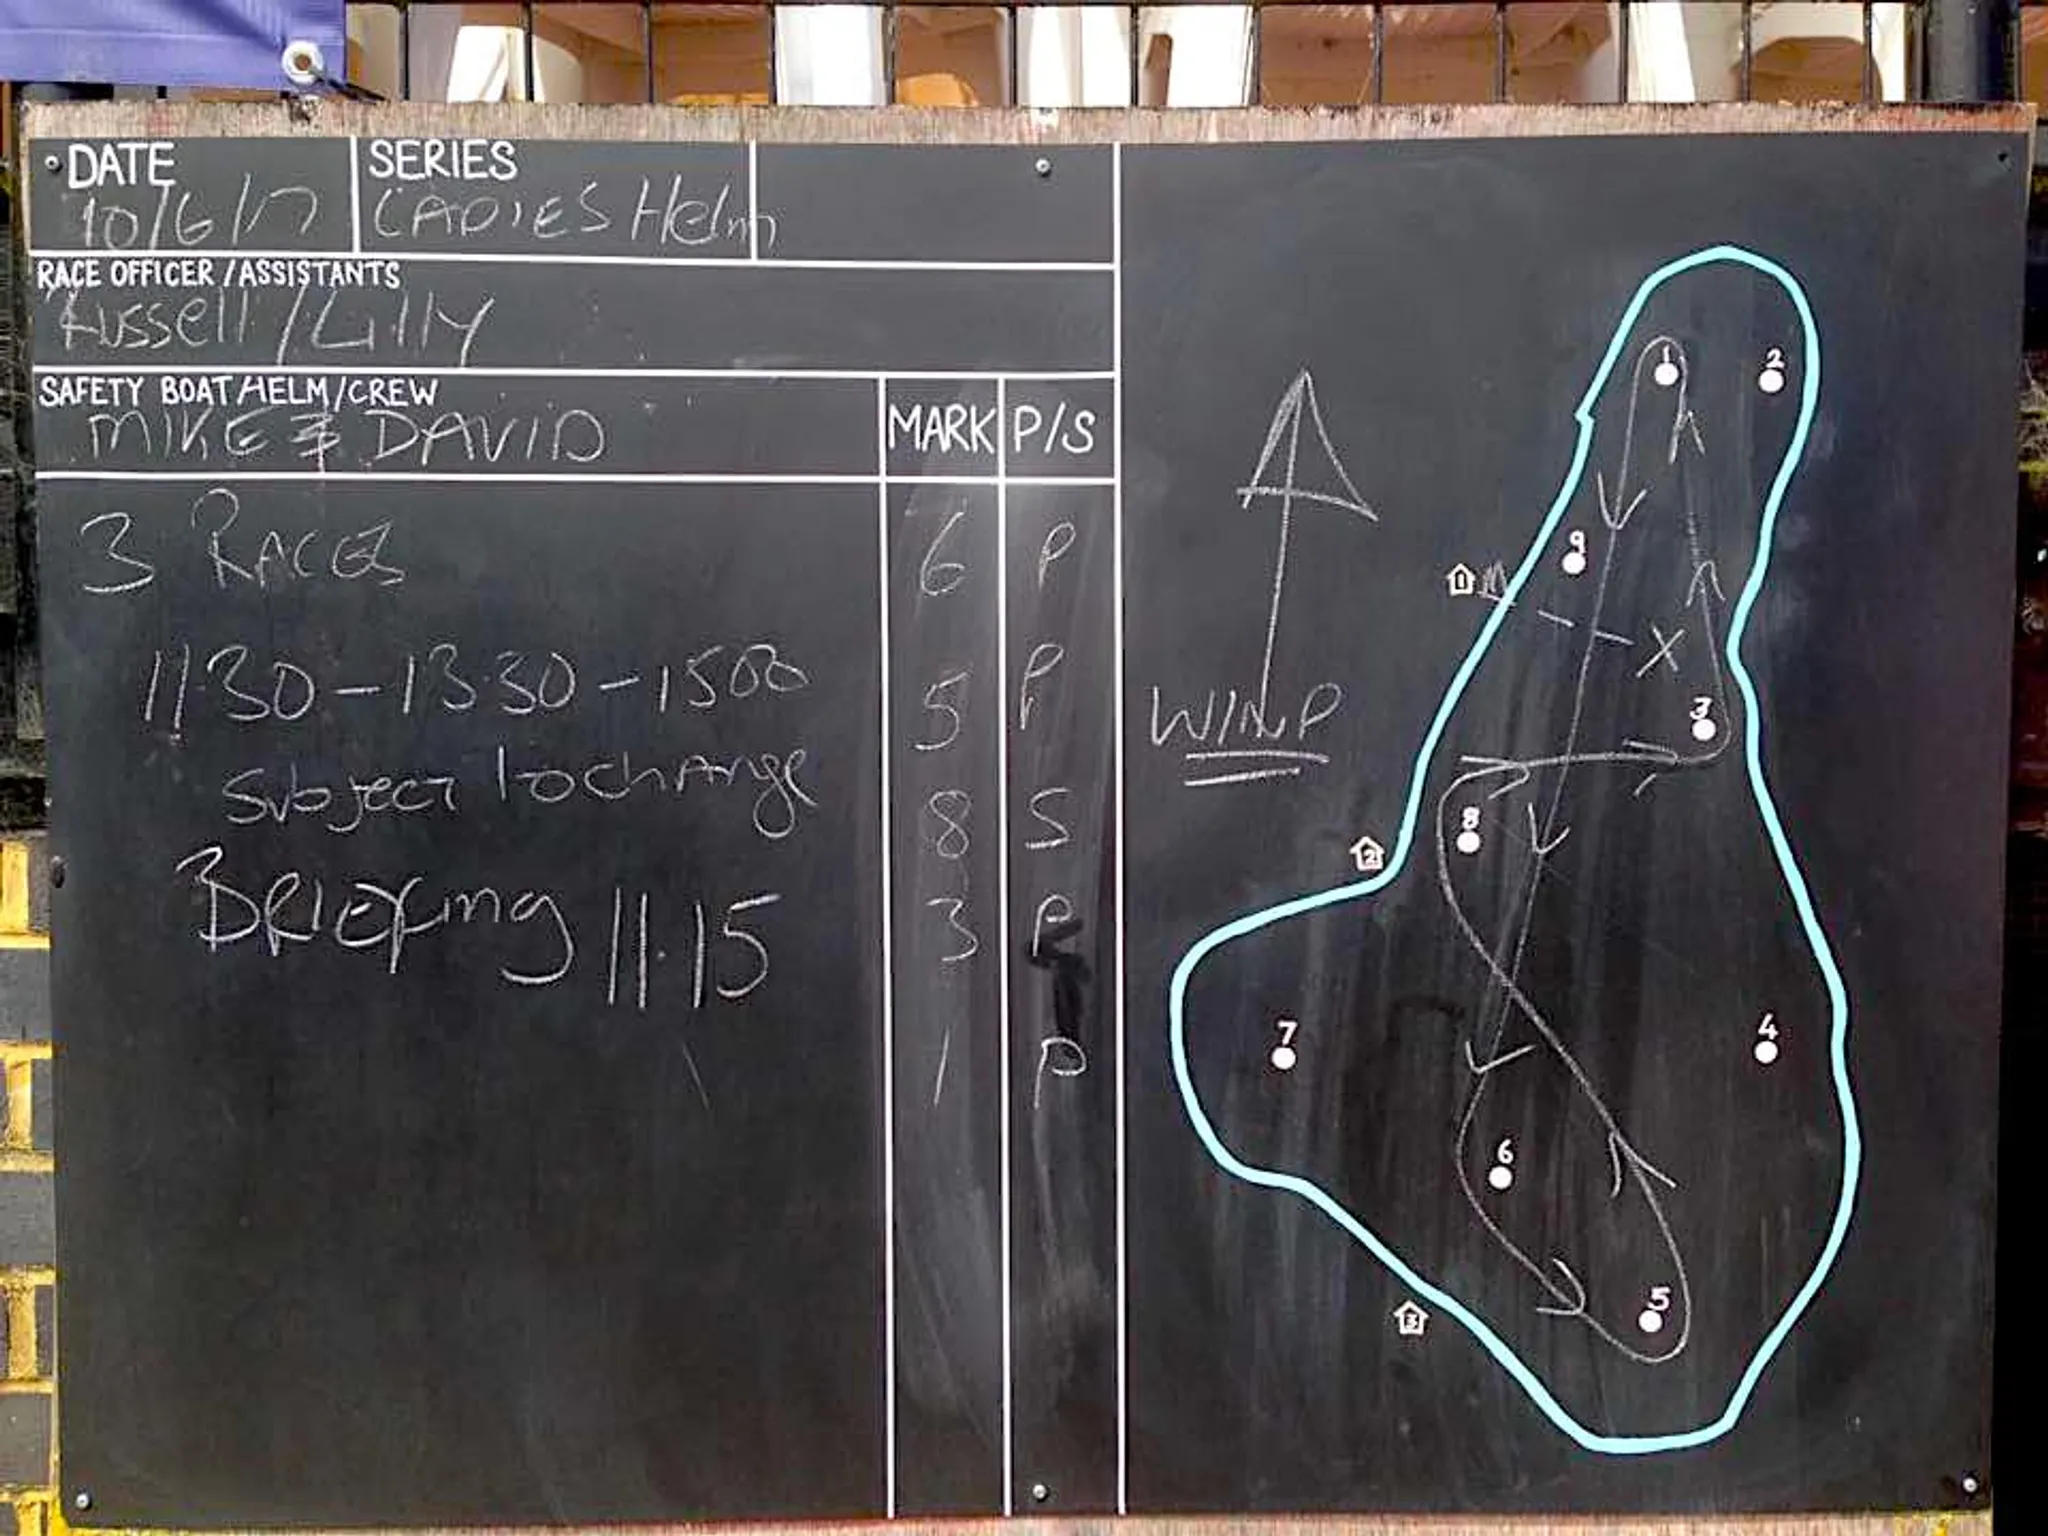 DATE
10/6/17
SERIES
LADIES Helm
RACE OFFICER/ASSISTANTS
Russell/Lilly
SAFETY BOAT HELM/CREW
MIKE & DAVID
MARK P/S
3 RACES
11·30 - 13·30 - 1500
subject to change
Briefing 11·15
6 P
5 P
8 S
3 P
1 P
WIND
1
2
9
1
X
3
8
2
7
4
6
5
3